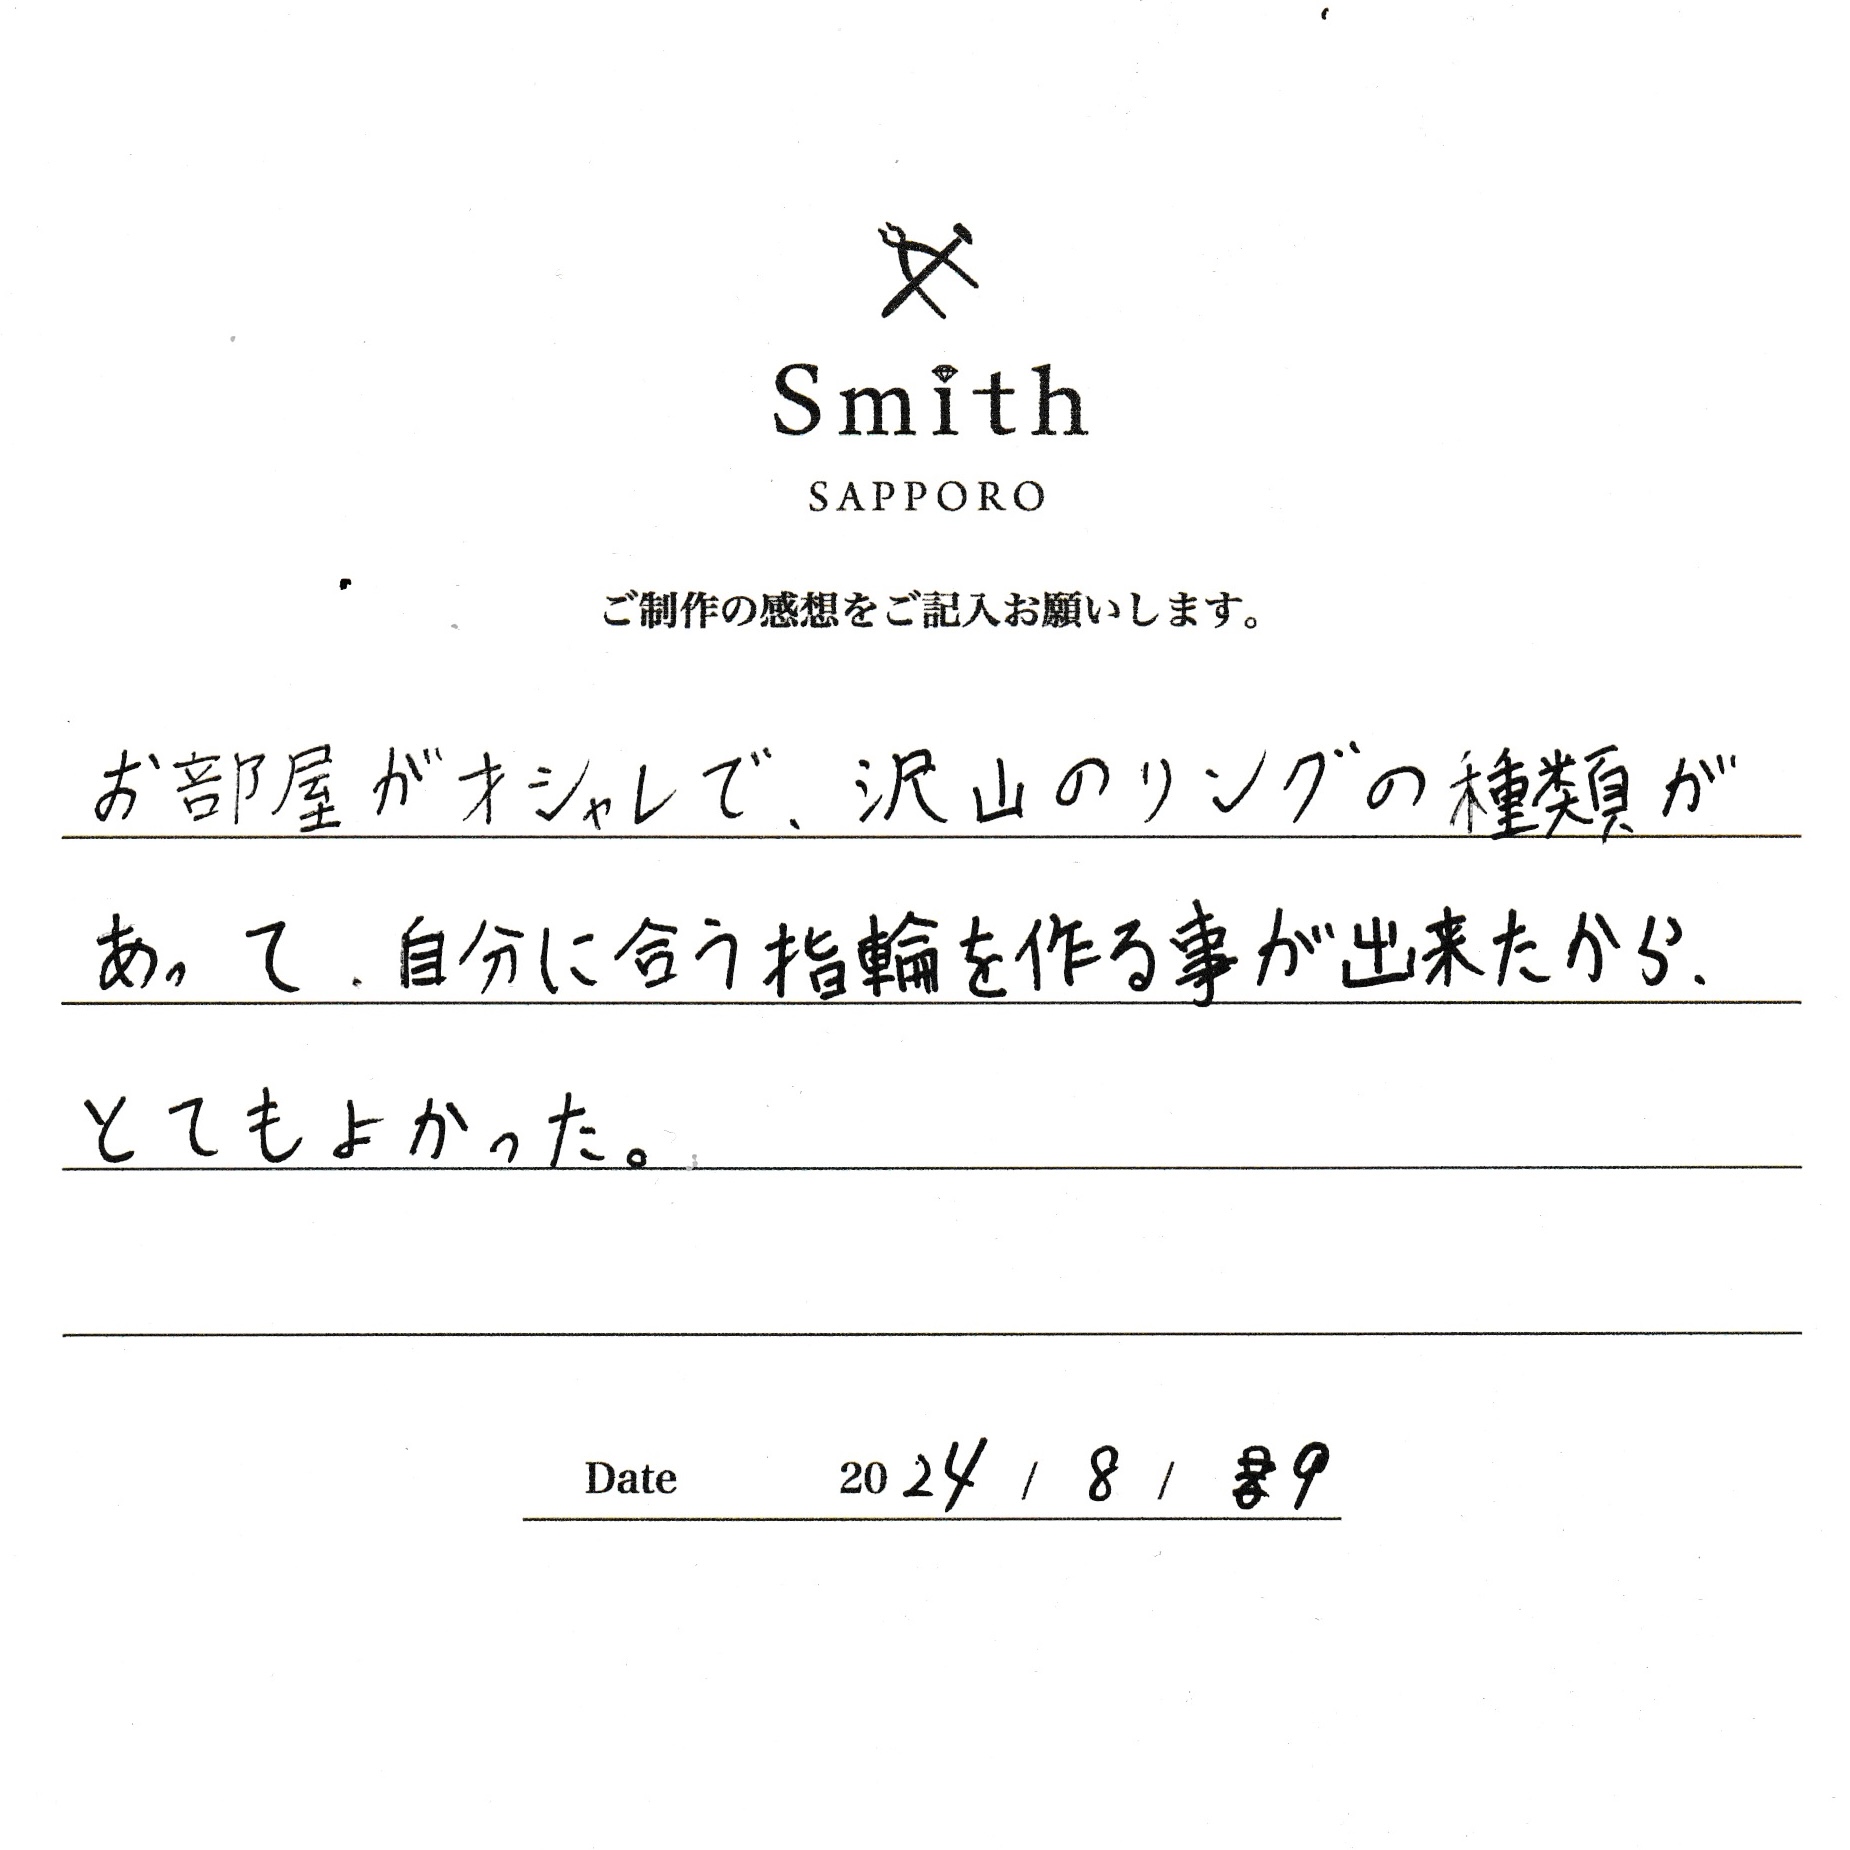 Smith
SAPPORO
ご制作の感想をご記入お願いします。
お部屋がオシャレで、沢山のリングの種類が
あって、自分に合う指輪を作る事が出来たから、
とてもよかった。
Date 2024 / 8 / 9